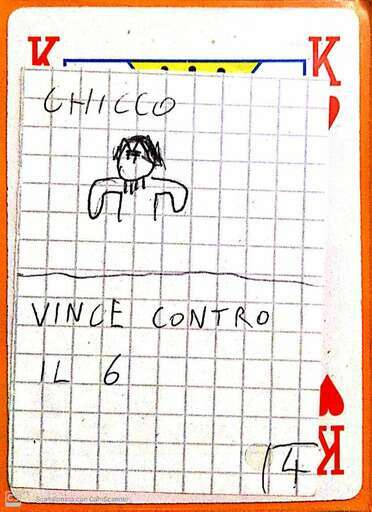 K K
CHICCO
VINCE CONTRO
IL 6
14
K
Scansionato con CamScanner